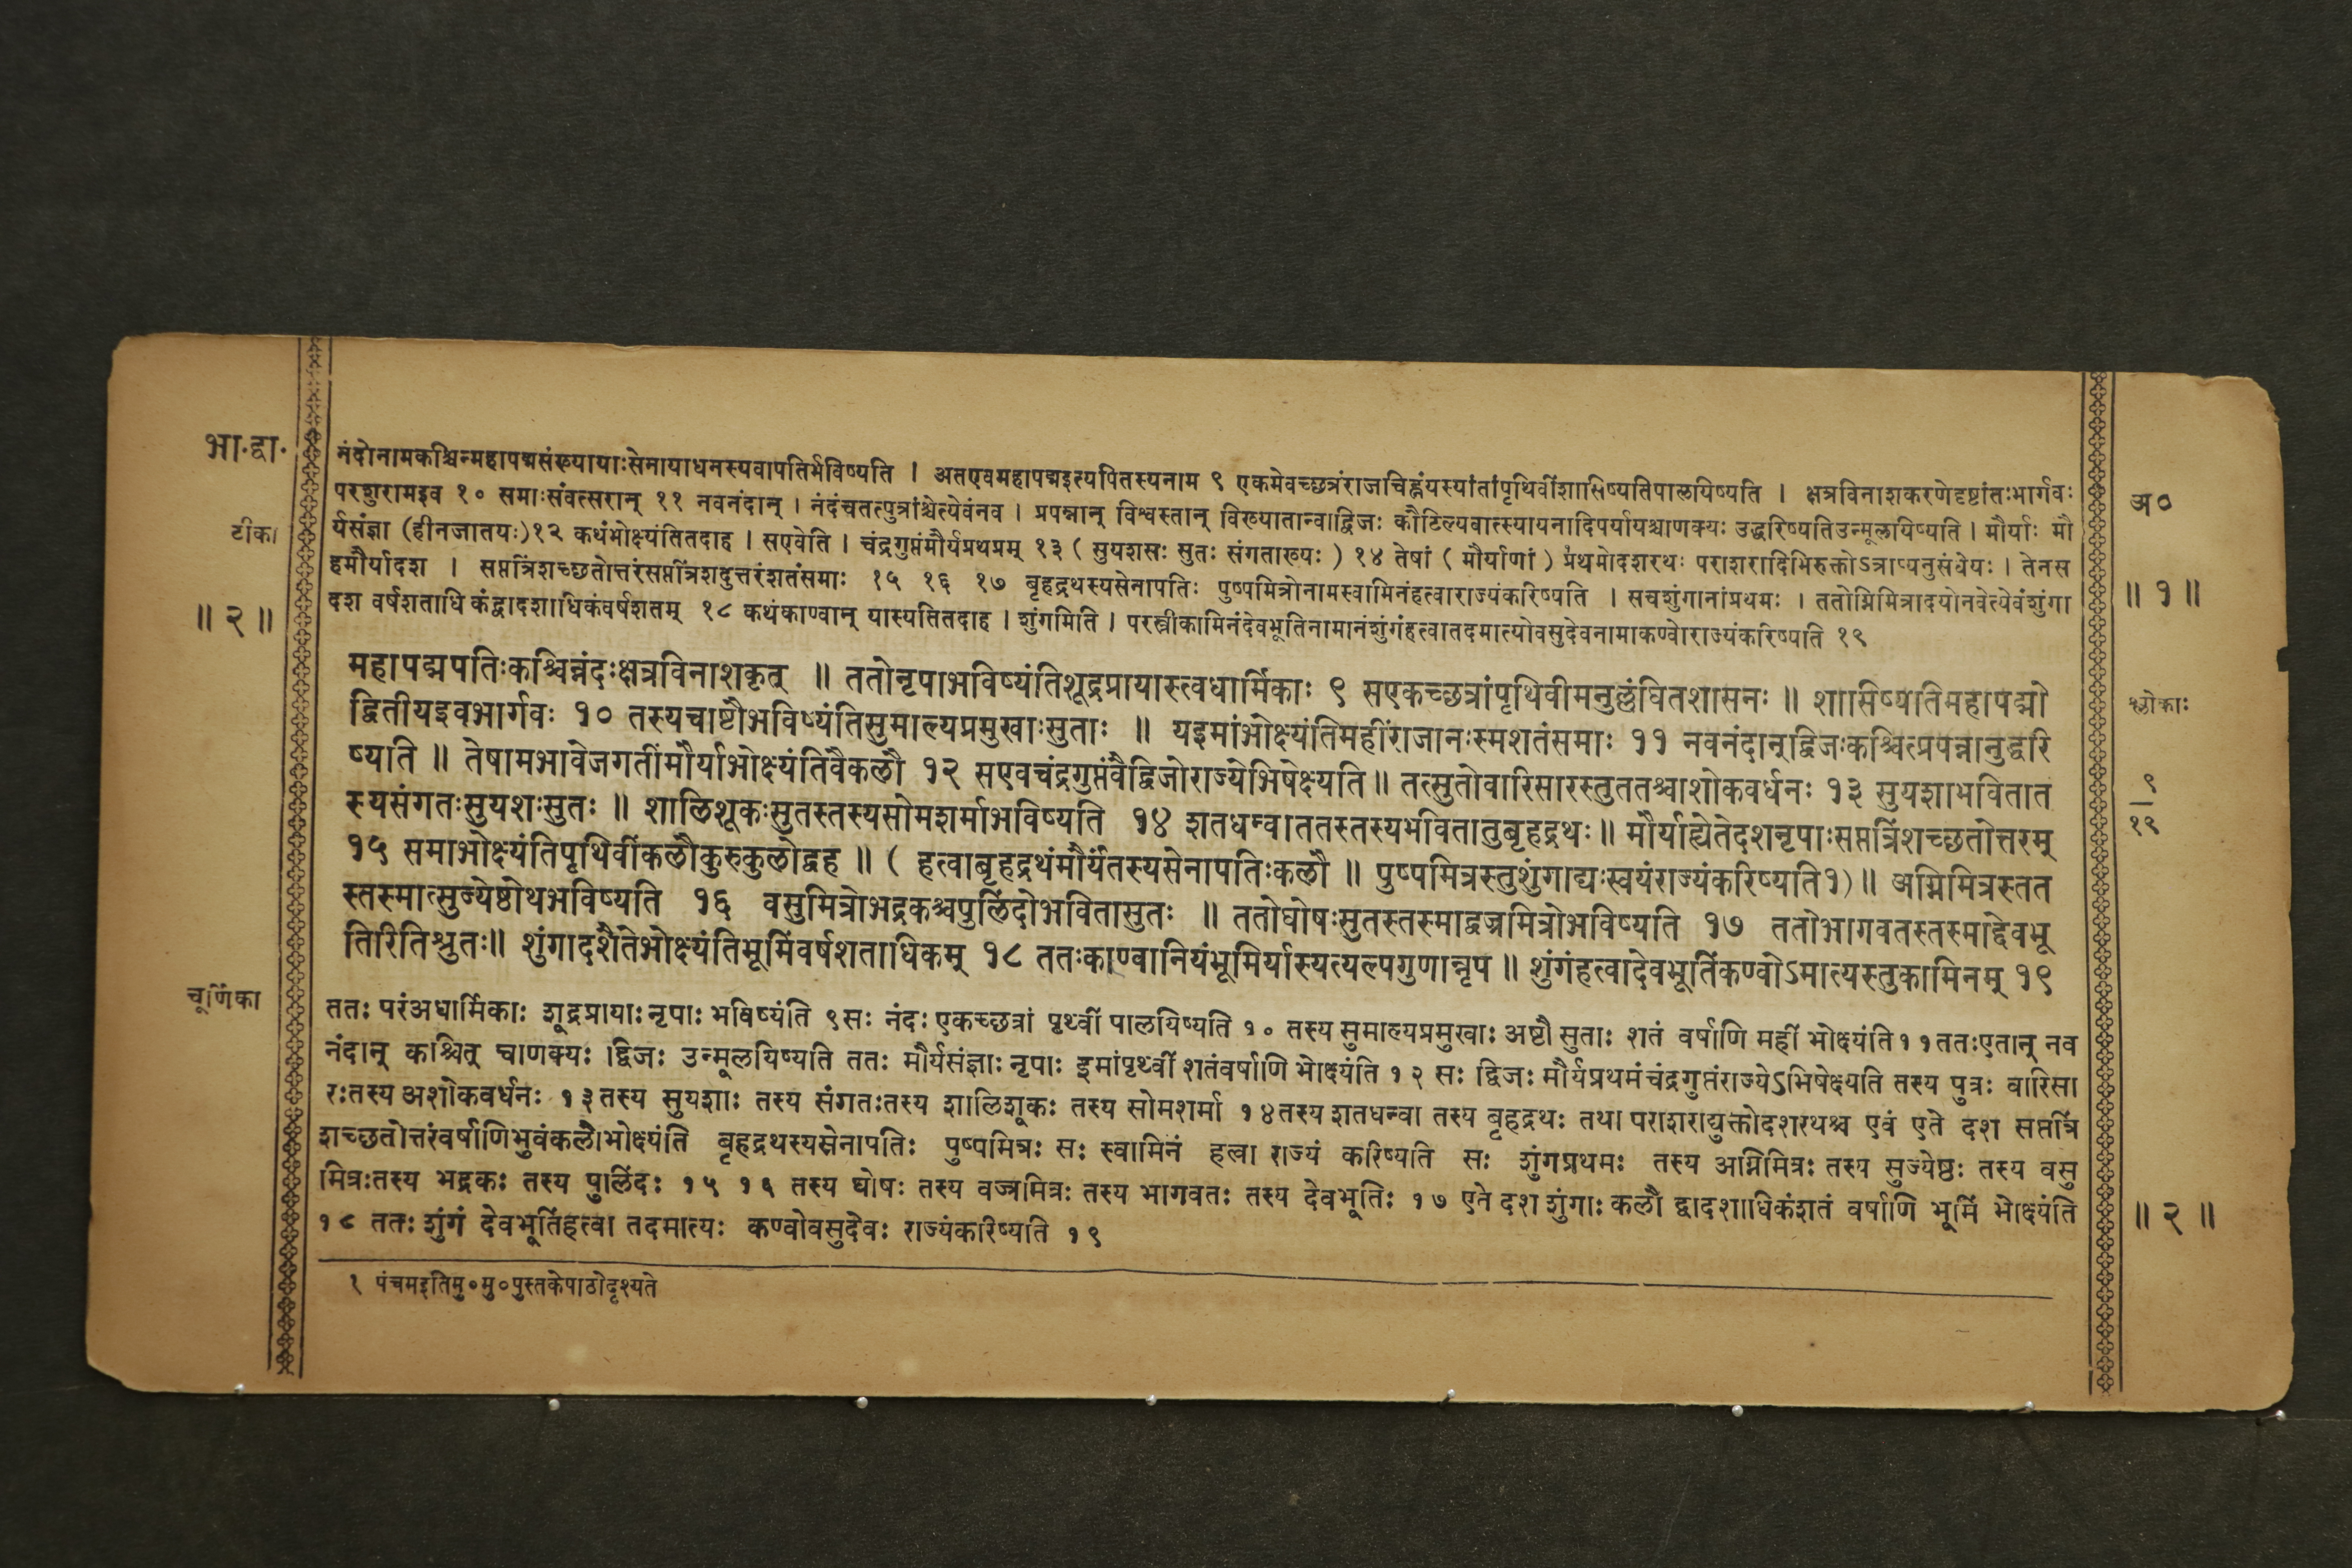 भा.द्वा.
नंदोनामकश्चिन्महापद्मसंख्यायाःसेनायाधनस्यवापतिर्भविष्यति । अतएवमहापद्मइत्यपितस्यनाम ९ एकमेवच्छत्रंराजचिह्नंयस्यांतांपृथिवींशासिष्यतिपालयिष्यति । क्षत्रविनाशकरणेदृष्टांतःभार्गवः
अ०
टीका
परशुरामइव १० समाःसंवत्सरान् ११ नवनंदान् । नंदंचतत्पुत्रांश्चेत्येवंनव । प्रपन्नान् विश्वस्तान् विख्यातान्वाद्विजः कौटिल्यवात्स्यायनादिपर्यायश्चाणक्यः उद्धरिष्यतिउन्मूलयिष्यति । मौर्याः मौ
र्यसंज्ञा (हीनजातयः)१२ कथंभोक्ष्यंतितदाह । सएवेति । चंद्रगुप्तंमौर्यप्रथमम् १३ ( सुयशसः सुतः संगताख्यः ) १४ तेषां ( मौर्याणां ) प्रथमोदशरथः पराशरादिभिरुक्तोऽत्राप्यनुसंधेयः । तेनस
हमौर्यादश । सप्तत्रिंशच्छतोत्तरंसप्तत्रिंशदुत्तरंशतंसमाः १५ १६ १७ बृहद्रथस्यसेनापतिः पुष्पमित्रोनामस्वामिनंहत्वाराज्यंकरिष्यति । सचशुंगानांप्रथमः । ततोग्निमित्रादयोनवेत्येवंशुंगा
॥ १ ॥
॥ २ ॥
दश वर्षशताधि कंद्वादशाधिकंवर्षशतम् १८ कथंकाण्वान् यास्यतितदाह । शुंगमिति । परस्त्रीकामिनंदेवभूतिनामानंशुंगंहत्वातदमात्योवसुदेवनामाकण्वोराज्यंकरिष्यति १९
महापद्मपतिःकश्चिन्नंदःक्षत्रविनाशकृत् ॥ ततोनृपाभविष्यंतिशूद्रप्रायास्त्वधार्मिकाः ९ सएकच्छत्रांपृथिवीमनुल्लंघितशासनः ॥ शासिष्यतिमहापद्मो
श्लोकाः
द्वितीयइवभार्गवः १० तस्यचाष्टौभविष्यंतिसुमाल्यप्रमुखाःसुताः ॥ यइमांभोक्ष्यंतिमहींराजानःस्मशतंसमाः ११ नवनंदान्द्विजःकश्चित्प्रपन्नानुद्धरि
ष्यति ॥ तेषामभावेजगतींमौर्याभोक्ष्यंतिवैकलौ १२ सएवचंद्रगुप्तंवैद्विजोराज्येभिषेक्ष्यति ॥ तत्सुतोवारिसारस्तुततश्चाशोकवर्धनः १३ सुयशाभवितात
९
१९
स्यसंगतःसुयशःसुतः ॥ शालिशूकःसुतस्तस्यसोमशर्माभविष्यति १४ शतधन्वाततस्तस्यभवितातुबृहद्रथः ॥ मौर्याह्येतेदशनृपाःसप्तत्रिंशच्छतोत्तरम्
१५ समाभोक्ष्यंतिपृथिवींकलौकुरुकुलोद्वह ॥ ( हत्वाबृहद्रथंमौर्यंतस्यसेनापतिःकलौ ॥ पुष्पमित्रस्तुशुंगाद्यःस्वयंराज्यंकरिष्यति१)॥ अग्निमित्रस्तत
स्तस्मात्सुज्येष्ठोथभविष्यति १६ वसुमित्रोभद्रकश्चपुलिंदोभवितासुतः ॥ ततोघोषःसुतस्तस्माद्वज्रमित्रोभविष्यति १७ ततोभागवतस्तस्माद्देवभू
तिरितिश्रुतः॥ शुंगादशैतेभोक्ष्यंतिभूमिंवर्षशताधिकम् १८ ततःकाण्वानियंभूमिर्यास्यत्यल्पगुणान्नृप ॥ शुंगंहत्वादेवभूतिंकण्वोऽमात्यस्तुकामिनम् १९
चूर्णिका
ततः परंअधार्मिकाः शूद्रप्रायाः नृपाः भविष्यंति ९सः नंदः एकच्छत्रां पृथ्वीं पालयिष्यति १० तस्य सुमाल्यप्रमुखाः अष्टौ सुताः शतं वर्षाणि महीं भोक्ष्यंति११ततःएतान् नव
नंदान् कश्चित् चाणक्यः द्विजः उन्मूलयिष्यति ततः मौर्यसंज्ञाः नृपाः इमांपृथ्वीं शतंवर्षाणि भोक्ष्यंति १२ सः द्विजः मौर्यप्रथमंचंद्रगुप्तंराज्येऽभिषेक्ष्यति तस्य पुत्रः वारिसा
रःतस्य अशोकवर्धनः १३तस्य सुयशाः तस्य संगतःतस्य शालिशूकः तस्य सोमशर्मा १४तस्य शतधन्वा तस्य बृहद्रथः तथा पराशराद्युक्तोदशरथश्च एवं एते दश सप्तत्रिं
शच्छतोत्तरंवर्षाणिभुवंकलौभोक्ष्यंति बृहद्रथस्यसेनापतिः पुष्पमित्रः सः स्वामिनं हत्वा राज्यं करिष्यति सः शुंगप्रथमः तस्य अग्निमित्रः तस्य सुज्येष्ठः तस्य वसु
मित्रःतस्य भद्रकः तस्य पुलिंदः १५ १६ तस्य घोषः तस्य वज्रमित्रः तस्य भागवतः तस्य देवभूतिः १७ एते दश शुंगाः कलौ द्वादशाधिकंशतं वर्षाणि भूमिं भोक्ष्यंति
॥ २ ॥
१८ ततः शुंगं देवभूतिंहत्वा तदमात्यः कण्वोवसुदेवः राज्यंकरिष्यति १९
१ पंचमइतिमु०मु०पुस्तकेपाठोदृश्यते